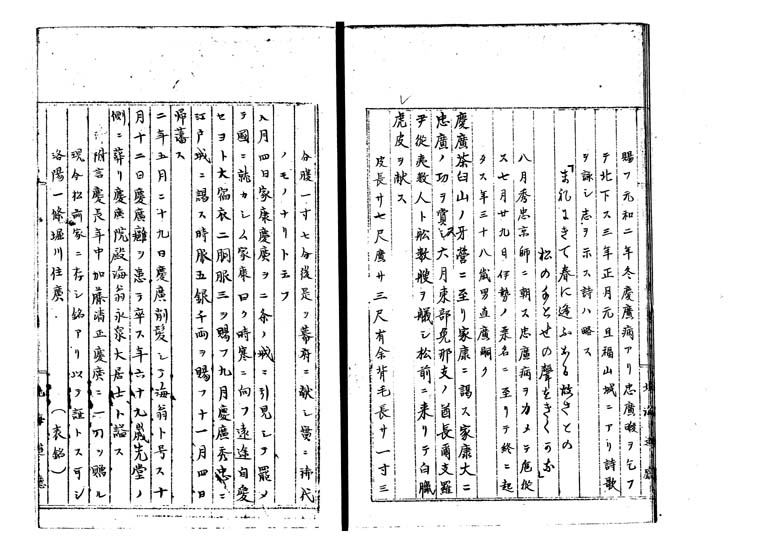 賜フ元和二年冬慶廣病アリ忠廣暇ヲ乞フ
テ北下ス三年正月元旦福山城ニアリ詩歌
ヲ詠シ志ヲ示ス詩ハ略ス
春に逢ふ
松の とせの聲をきく
八月秀忠京師ニ朝ス忠廣病ヲカメテ扈從
ス七月廿九日伊勢ノ桑名ニ至リテ終ニ起
タス年三十八歳男直廣嗣ク
慶廣茶臼山ノ牙營ニ至リ家康ニ謁ス家康大ニ
忠廣ノ功ヲ賞ス六月東部 ノ酋長
尹從夷数人ト舩数艘ヲ艤シ松前ニ来リテ白臘
虎皮ヲ献ス
皮長サ七尺廣サ三尺有余背毛長サ一寸三
分腹一寸七分後是ヲ幕府ニ献シ實ニ稀代
ノモノナリト云フ
八月四日家康慶廣ヲ二条ノ城ニ引見シヲ罷メ
ヲ國ニ就カシム家康曰ク時寒ニ向フ遠途自愛
セヨト大宿衣二胴服三ヲ賜フ九月慶廣秀忠ニ
江戸城ニ謁ス時服五銀千両ヲ賜フ十一月四日
帰藩ス
二年五月二十九日慶廣削髪シテ海翁ト号ス十
月十二日慶廣癰ヲ患ヲ卒ス年六十九歳先堂ノ
側ニ葬リ慶廣院殿海翁永泉大居士ト諡ス
附言慶長年中加藤清正慶廣ニ一刀ヲ贈ル
現今松前家ニ存シ銘アリ以テ証トス可シ
洛陽一條堀川住廣 （表銘）